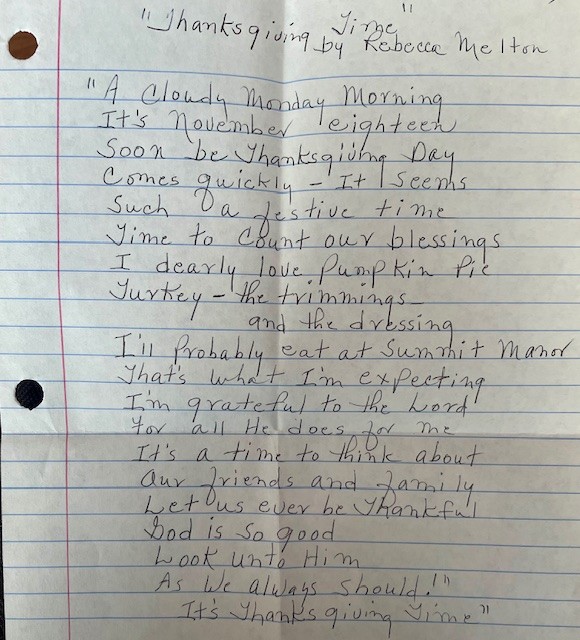 "Thanksgiving Time"
by Rebecca Melton
"A Cloudy Monday Morning
It's November eighteen
Soon be Thanksgiving Day
Comes quickly - It seems
Such a festive time
Time to Count our blessings
I dearly love Pumpkin Pie
Turkey - the trimmings -
and the dressing
I'll Probably eat at Summit Manor
That's what I'm expecting
I'm grateful to the Lord
For all He does for me
It's a time to think about
Our friends and family
Let us ever be Thankful
God is so good
Look unto Him
As We always should!"
It's Thanksgiving Time"